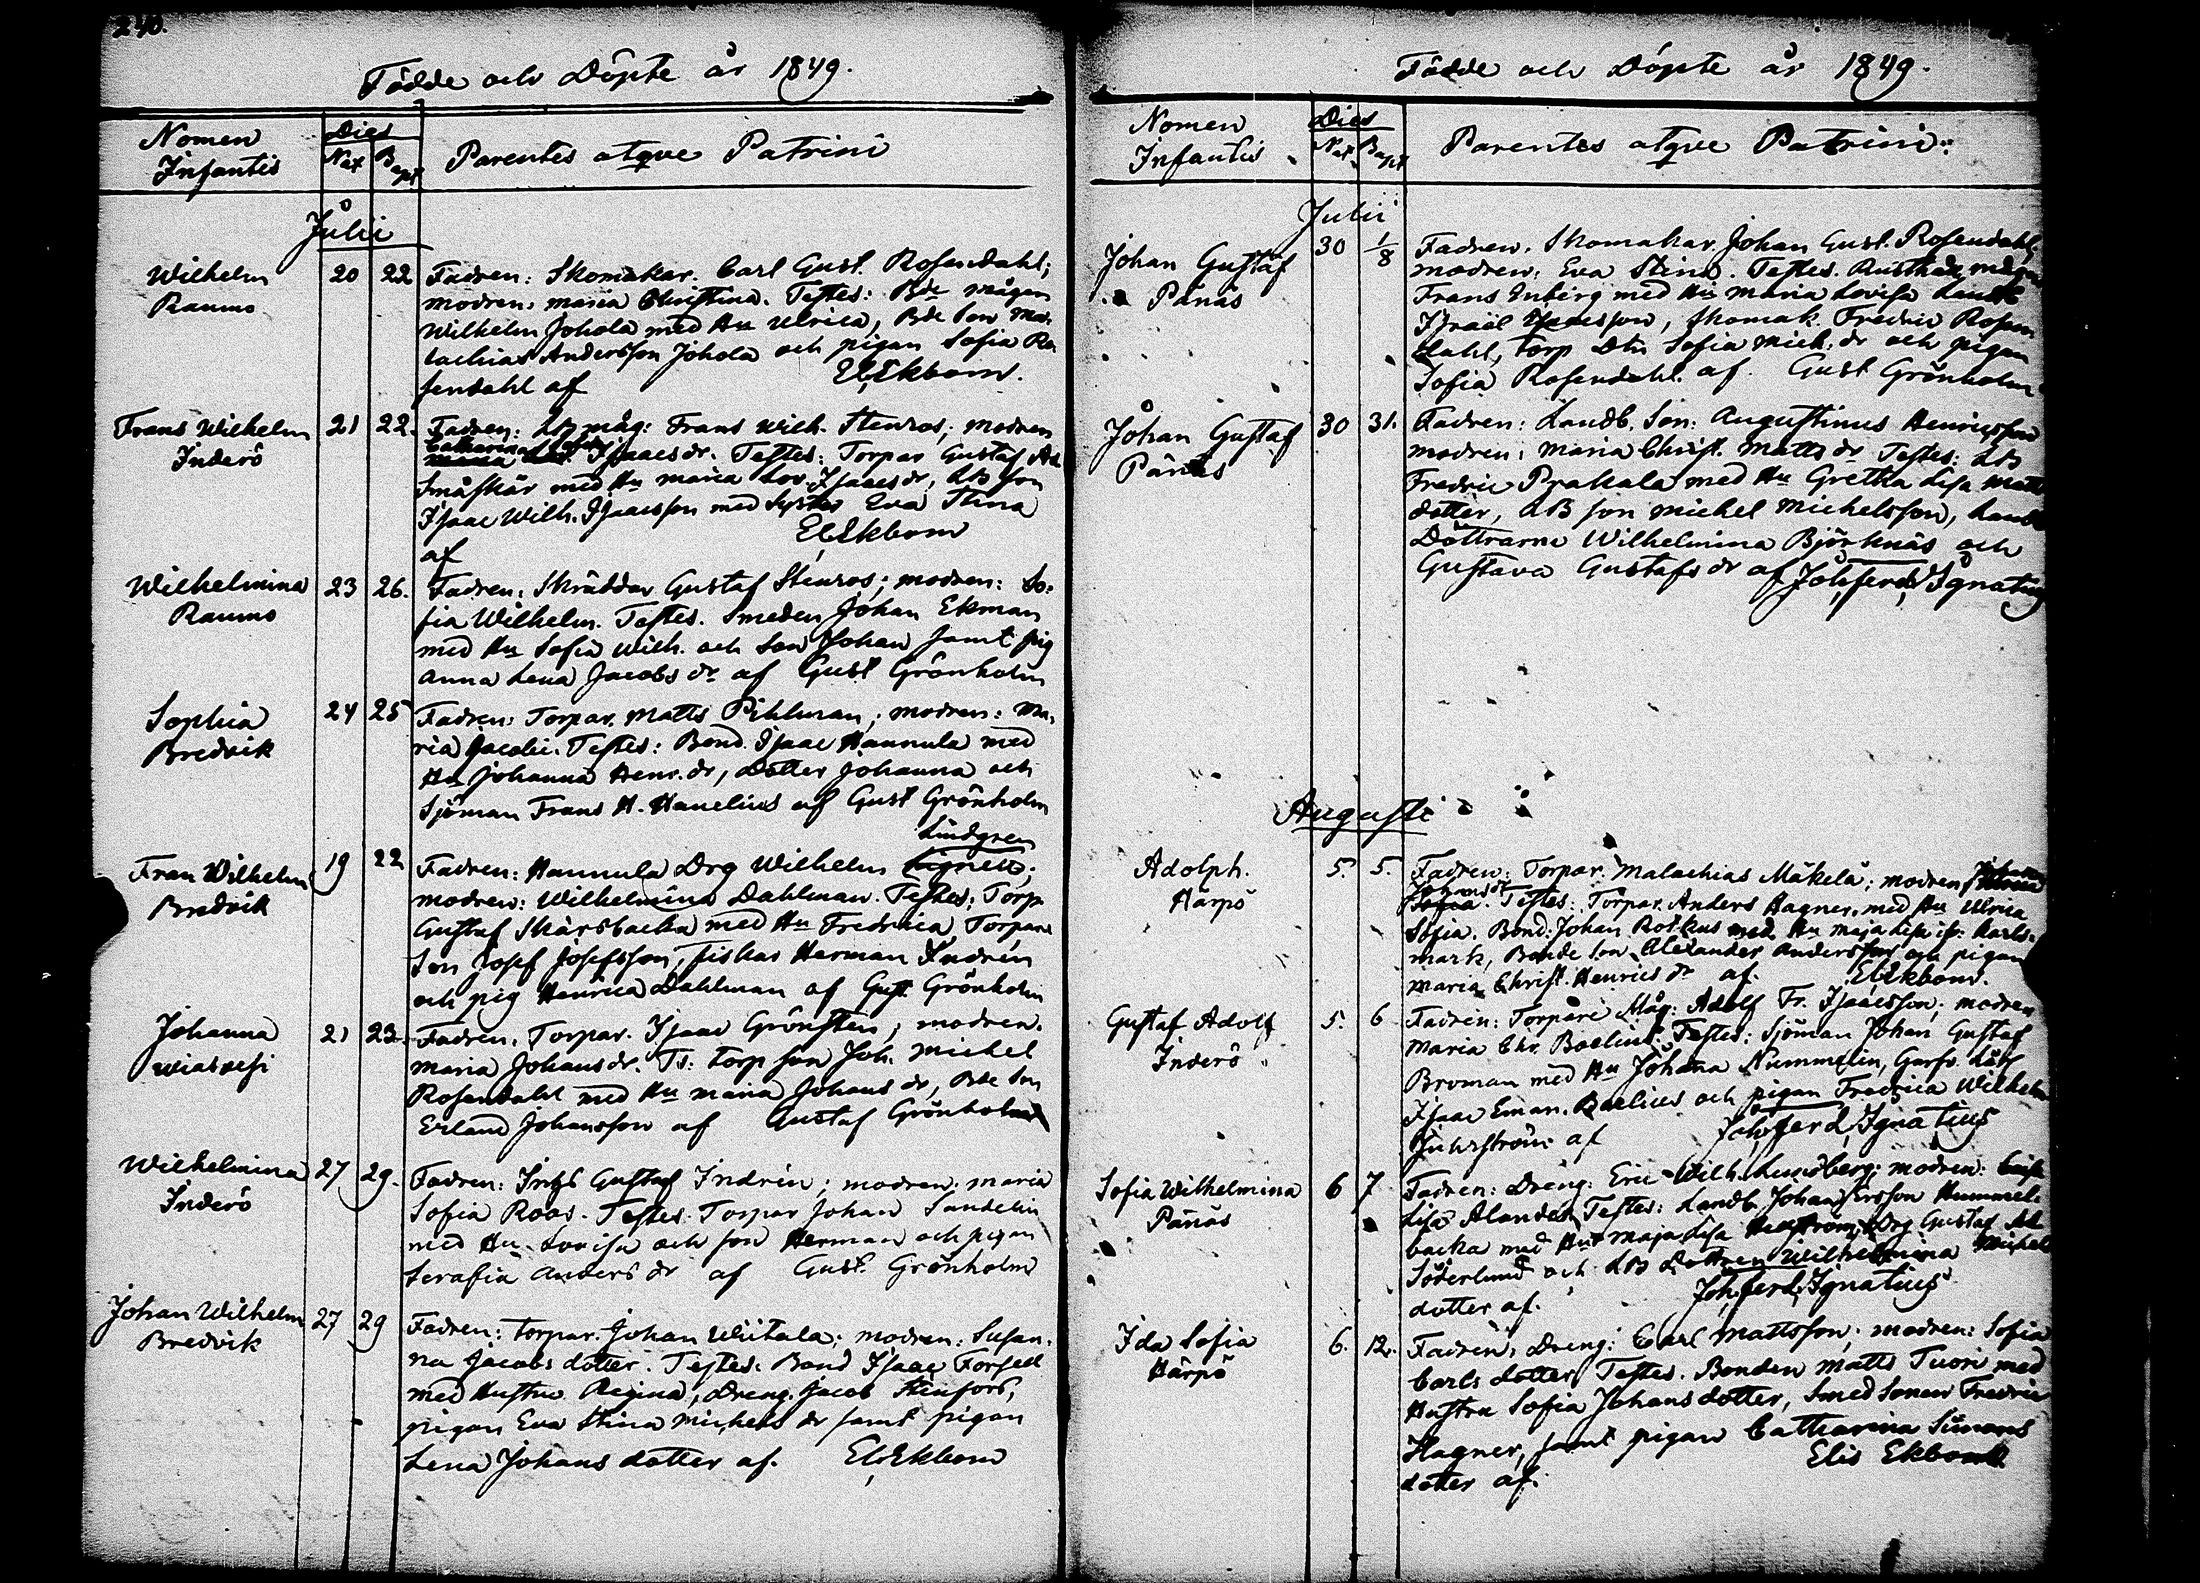 240.
Födde och Döpte år 1849.
Nomen Infantis
Dies
Nat Bapt
Parentes atqve Patrini
Julii
Wilhelm
Raumo
20 22
Fadren: Skomakar. Carl Gust. Rosendahl;
modren: Maria Christina. Testes: Bde mågen
Wilhelm Johola med Hu Ulrica, Bde son Ma-
lachias Andersson Johola och pigan Sofia Ro-
sendahl af El, Ekbom.
Frans Wilhelm
Inderö
21 22.
Fadren: LB måg: Frans Wilh. Stenros; modren
Catharina Isaacs dr. Testes: Torpar Gustaf
Småskär med Hu Maria Lov. Isaacs dr, LB son
Isaac Wilh. Isaacsson med Syster Eva Stina
af El, Ekbom
Wilhelmina
Raumo
23 26.
Fadren: Skräddar Gustaf Stenros; modren: So-
fia Wilhelm. Testes. Smeden Johan Ekman
med Hu Sofia Wilh. och Son Johan samt pig
Anna Lena Jacobs dr af Gust Grönholm
Sophia
Bredvik
24 25
Fadren: Torpar. Matts Pihlman; modren: Ma-
ria Jacobi. Testes: Bond. Isaac Hannula med
Hu Johanna Henr. dr, Dotter Johanna och
Sjöman Frans H. Hanelius af Gust Grönholm
Lindgren
Fran Wilhelm
Bredvik
19 22
Fadren: Hannula Drg Wilhelm
modren: Wilhelmina Dahlman. Testes: Torp
Gustaf Skärsbacka med Hu Fredrica, Torpare
Son Josef Josefsson, fiskar Herman Indrén
och pig Henrica Dahlman af Gust Grönholm
Johanna
Wiasvesi
21 23.
Fadren, Torpar. Isaac Grönsten; modren.
Maria Johans dr. Ts: Torp son Joh. Michel
Rosendahl med Hu Maria Johans dr, Bde Son
Erland Johansson af Gustaf Grönholm
Wilhelmina
Inderö
27 29.
Fadren: Inhs Gustaf Indrén; modren: Maria
Sofia Roos. Testes: Torpar Johan Sandelin
med Hu Lovisa och son Herman och pigan
Serafia Anders dr af Gust. Grönholm
Johan Wilhelm
Bredvik
27 29
Fadren: Torpar. Johan Wiitala; modren: Susan-
na Jacobs dotter. Testes: Bond Isaac Forsell
med Hustru Regina, Dreng. Jacob Stenfors,
pigan Eva Stina Michels dr samt pigan
Lena Johans dotter af. El, Ekbom
Födde och Döpte år 1849.
Nomen Infantis
Dies
Nat. Bapt
Parentes atqve Patrini:
Julii
Johan Gustaf
Pånäs
30 1/8
Fadren. Skomakar. Johan Gust. Rosendahl,
modren. Eva Stina. Testes. Rusthåls mågen
Frans Enberg med Hu Maria Lovisa Landb
Israël Isaacsson, Skomak. Fredric Rosen
dahl, Torp Dtr Sofia Mich. dr och pigan
Sofia Rosendahl af. Gust Grönholm
Johan Gustaf
Pånäs
30 31.
Fadren: Landb. Son: Augustinus Henricsson
modren: Maria Christ. Matts dr Testes: LB
Fredric Prakala med Hu Gretka Lisa Matts
dotter, LB son Michel Michelsson, Landb
Döttrarne Wilhelmina Björknäs och
Gustava Gustafs dr af Joh, ferd, Ignatius
Augusti
Adolph.
Härpö
5. 5.
Fadren: Torpar. Malachias Mäkelä; modren
Johans dr. Testes: Torpar. Anders Hagner. med Hu Ulrica
Sofia. Bond. Johan Rotkus med Hu Maja Lisa Karls-
mark, Bonde Son Alexander Andersson och pigan
Maria Christ. Henrics dr af. El, Ekbom.
Gustaf Adolf
Inderö
5. 6
Fadren: Torpare Måg: Adolf Fr. Isaacsson; modren
Maria Chr. Boelius. Testes: Sjöman Johan Gustaf
Broman med Hu Johanna Nummelin, Garfv. Lärl
Isaac Eman. Boelius och pigan Fredrica Wilhelm
af Joh, ferd, Ignatius
Sofia Wilhelmina
Pånäs
6 7
Fadren: Dreng: Eric Wilh. Lundberg; modren: Cajsa
Lisa Alander. Testes: Landb. Johan Ersson Hummel-
backa med Hu Maja Lisa Drg Gustaf
Söderlund och LB Dottren Wilhelmina Michels
dotter af. Joh, ferd, Ignatius
Ida Sofia
Härpö
6. 12.
Fadren: Dreng: Carl Mattsson; modren: Sofia
Carls dotter. Testes. Bonden Matts Tuori med
Hustru Sofia Johans dotter, Smed sonen Fredric
Hagner, samt pigan Catharina Simons
dotter af. Elis Ekbom